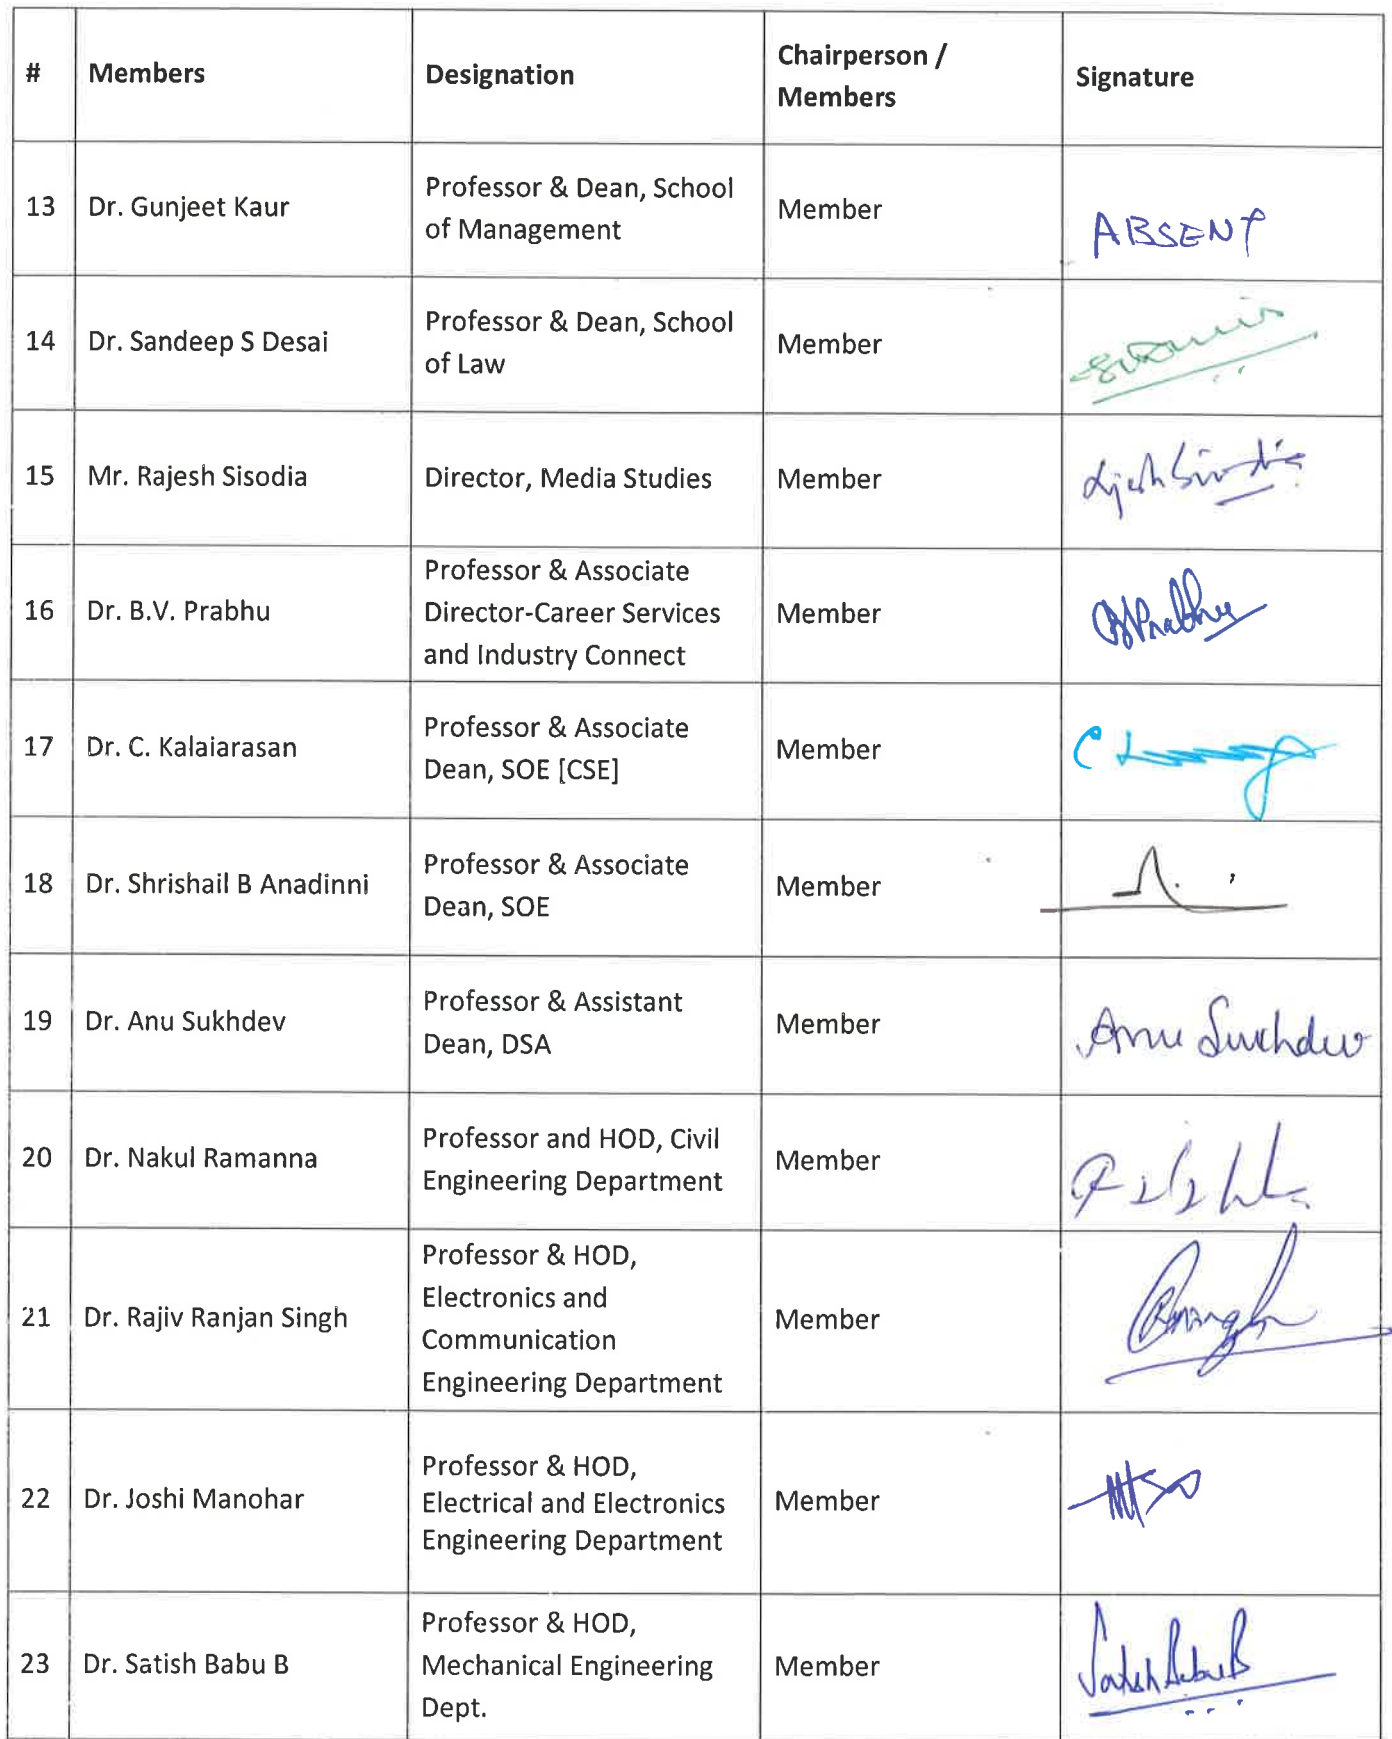 # Members Designation Chairperson / Members Signature
13 Dr. Gunjeet Kaur Professor & Dean, School of Management Member ABSENT
14 Dr. Sandeep S Desai Professor & Dean, School of Law Member
15 Mr. Rajesh Sisodia Director, Media Studies Member
16 Dr. B.V. Prabhu Professor & Associate Director-Career Services and Industry Connect Member BVPrabhu
17 Dr. C. Kalaiarasan Professor & Associate Dean, SOE [CSE] Member
18 Dr. Shrishail B Anadinni Professor & Associate Dean, SOE Member
19 Dr. Anu Sukhdev Professor & Assistant Dean, DSA Member Anu Sukhdev
20 Dr. Nakul Ramanna Professor and HOD, Civil Engineering Department Member
21 Dr. Rajiv Ranjan Singh Professor & HOD, Electronics and Communication Engineering Department Member
22 Dr. Joshi Manohar Professor & HOD, Electrical and Electronics Engineering Department Member
23 Dr. Satish Babu B Professor & HOD, Mechanical Engineering Dept. Member Satish Babu B